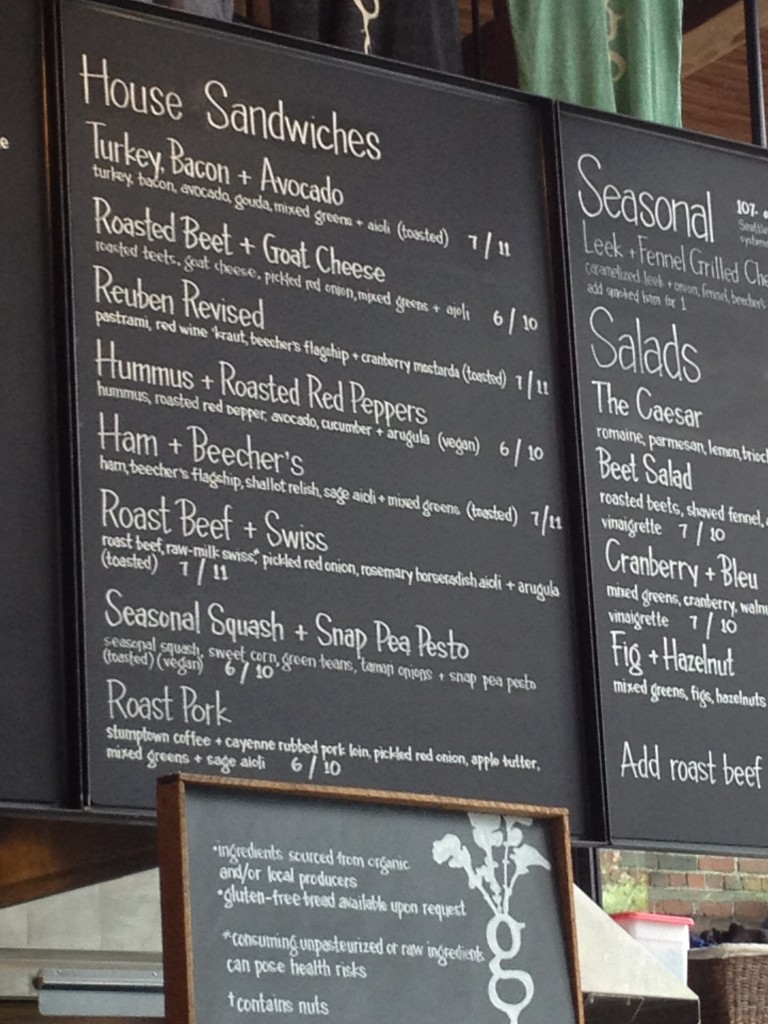 House Sandwiches
Turkey, Bacon + Avocado
turkey, bacon, avocado, gouda, mixed greens + aioli (toasted) 7/11
Roasted Beet + Goat Cheese
roasted beets, goat cheese, pickled red onion, mixed greens + aioli 6/10
Reuben Revised
pastrami, red wine 'kraut, beecher's flagship + cranberry mostarda (toasted) 7/11
Hummus + Roasted Red Peppers
hummus, roasted red pepper, avocado, cucumber + arugula (vegan) 6/10
Ham + Beecher's
ham, beecher's flagship, shallot relish, sage aioli + mixed greens (toasted) 7/11
Roast Beef + Swiss
roast beef, raw-milk swiss,* pickled red onion, rosemary horseradish aioli + arugula
(toasted) 7/11
Seasonal Squash + Snap Pea Pesto
seasonal squash, sweet corn, green beans, onions + snap pea pesto
(toasted) (vegan) 6/10
Roast Pork
stumptown coffee + cayenne rubbed pork loin, pickled red onion, apple butter,
mixed greens + sage aioli 6/10
Seasonal
107.
Leek + Fennel Grilled Che
caramelized leek + onion, fennel, beecher's
add smoked ham for 1
Salads
The Caesar
romaine, parmesan, lemon, brioc
Beet Salad
roasted beets, shaved fennel,
vinaigrette 7/10
Cranberry + Bleu
mixed greens, cranberry, waln
vinaigrette 7/10
Fig + Hazelnut
mixed greens, figs, hazelnuts
Add roast beef
*ingredients sourced from organic
and/or local producers
*gluten-free bread available upon request
*consuming unpasteurized or raw ingredients
can pose health risks
†contains nuts
g